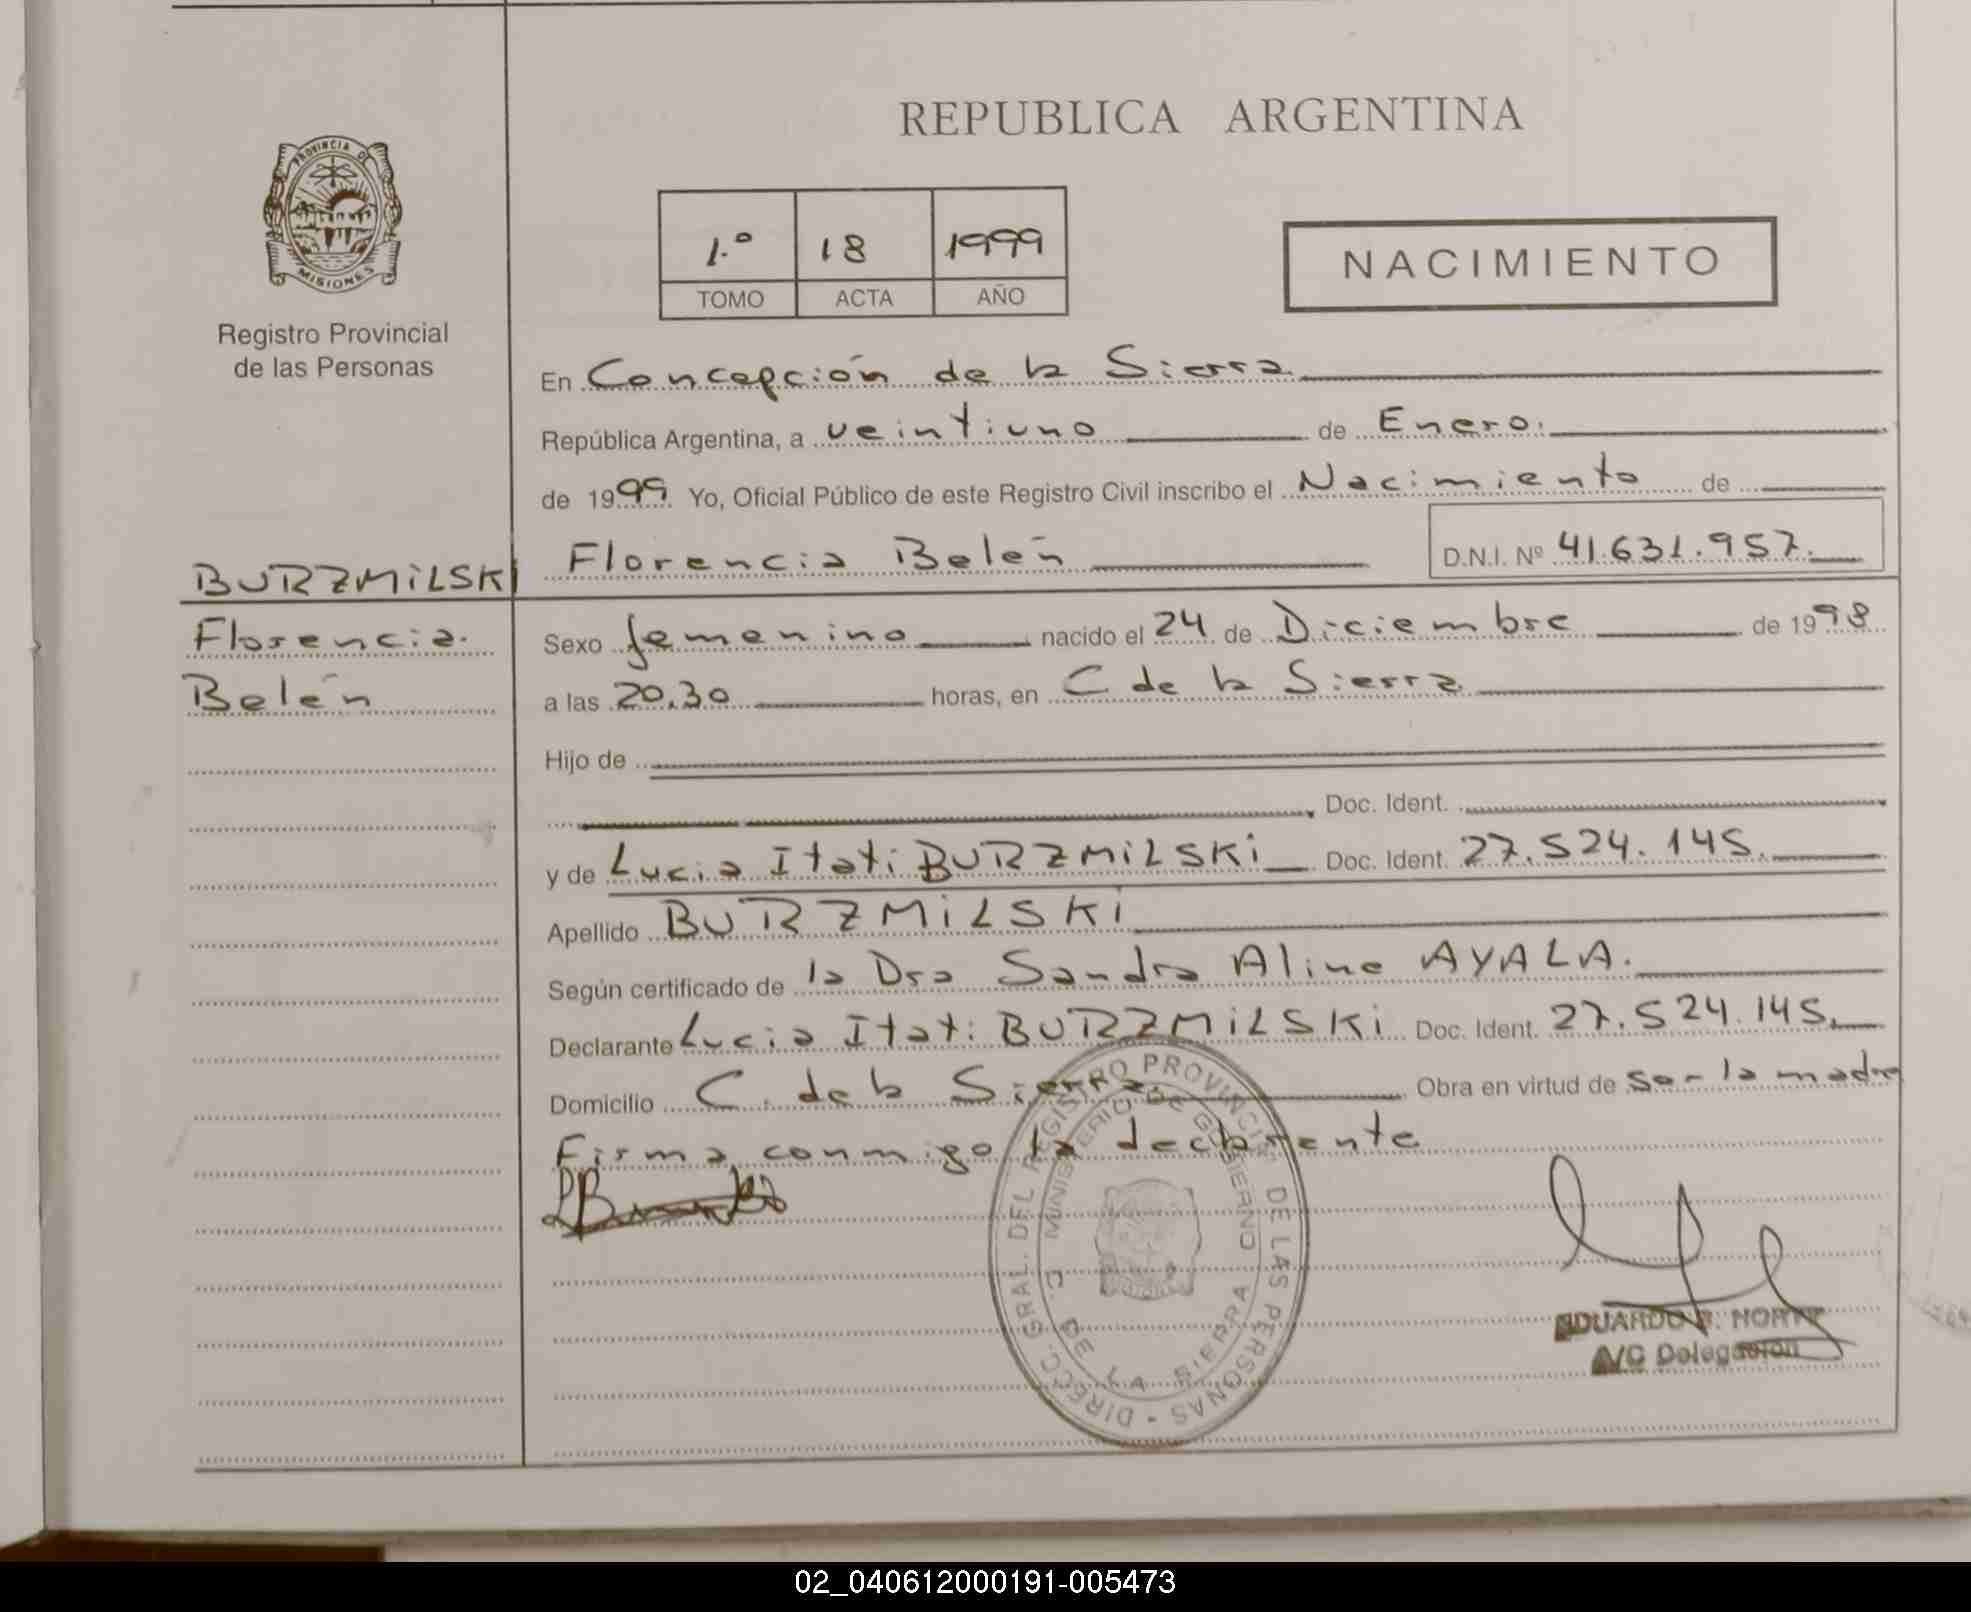 REPUBLICA ARGENTINA
PROVINCIA DE
MISIONES
Registro Provincial
de las Personas
1.º 18 1999
TOMO ACTA AÑO
NACIMIENTO
En Concepción de la Sierra
República Argentina, a veintiuno de Enero.
de 1999 Yo, Oficial Público de este Registro Civil inscribo el Nacimiento de
Florencia Belén D.N.I. Nº 41.631.957.
BURZMiLSKi
Florencia.
Belén
Sexo femenino nacido el 24 de Diciembre de 1998
a las 20.30 horas, en C de la Sierra
Hijo de
Doc. Ident.
y de Lucia Itati BURZMiLSKi Doc. Ident. 27.524.145.
Apellido BURZMiLSKi
Según certificado de la Dra Sandra Aline AYALA.
Declarante Lucia Itati BURZMiLSKi Doc. Ident. 27.524.145.
Domicilio C. de la Sierra. Obra en virtud de ser la madre
Firma conmigo la declarante
DIRECC. GRAL. DEL REGISTRO PROVINCIAL DE LAS PERSONAS
MINISTERIO DE GOBIERNO
C. DE LA SIERRA
EDUARDO
A/C Delegación
02_040612000191-005473